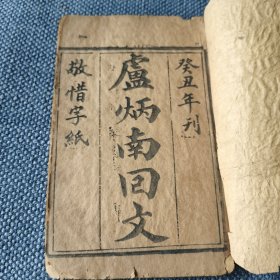 癸丑年刊
盧炳南回文
敬惜字紙